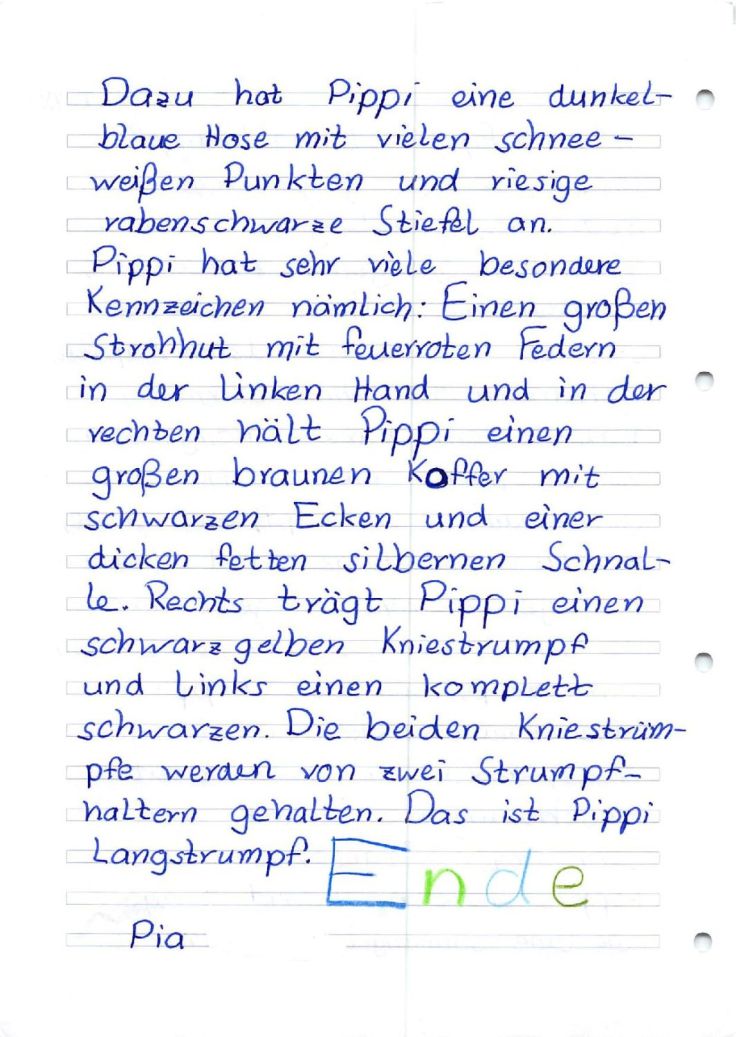 Dazu hat Pippi eine dunkel-
blaue Hose mit vielen schnee-
weißen Punkten und riesige
rabenschwarze Stiefel an.
Pippi hat sehr viele besondere
Kennzeichen nämlich: Einen großen
Strohhut mit feuerroten Federn
in der linken Hand und in der
rechten hält Pippi einen
großen braunen Koffer mit
schwarzen Ecken und einer
dicken fetten silbernen Schnal-
le. Rechts trägt Pippi einen
schwarzgelben Kniestrumpf
und links einen komplett
schwarzen. Die beiden Kniestrüm-
pfe werden von zwei Strumpf-
haltern gehalten. Das ist Pippi
Langstrumpf. Ende
Pia